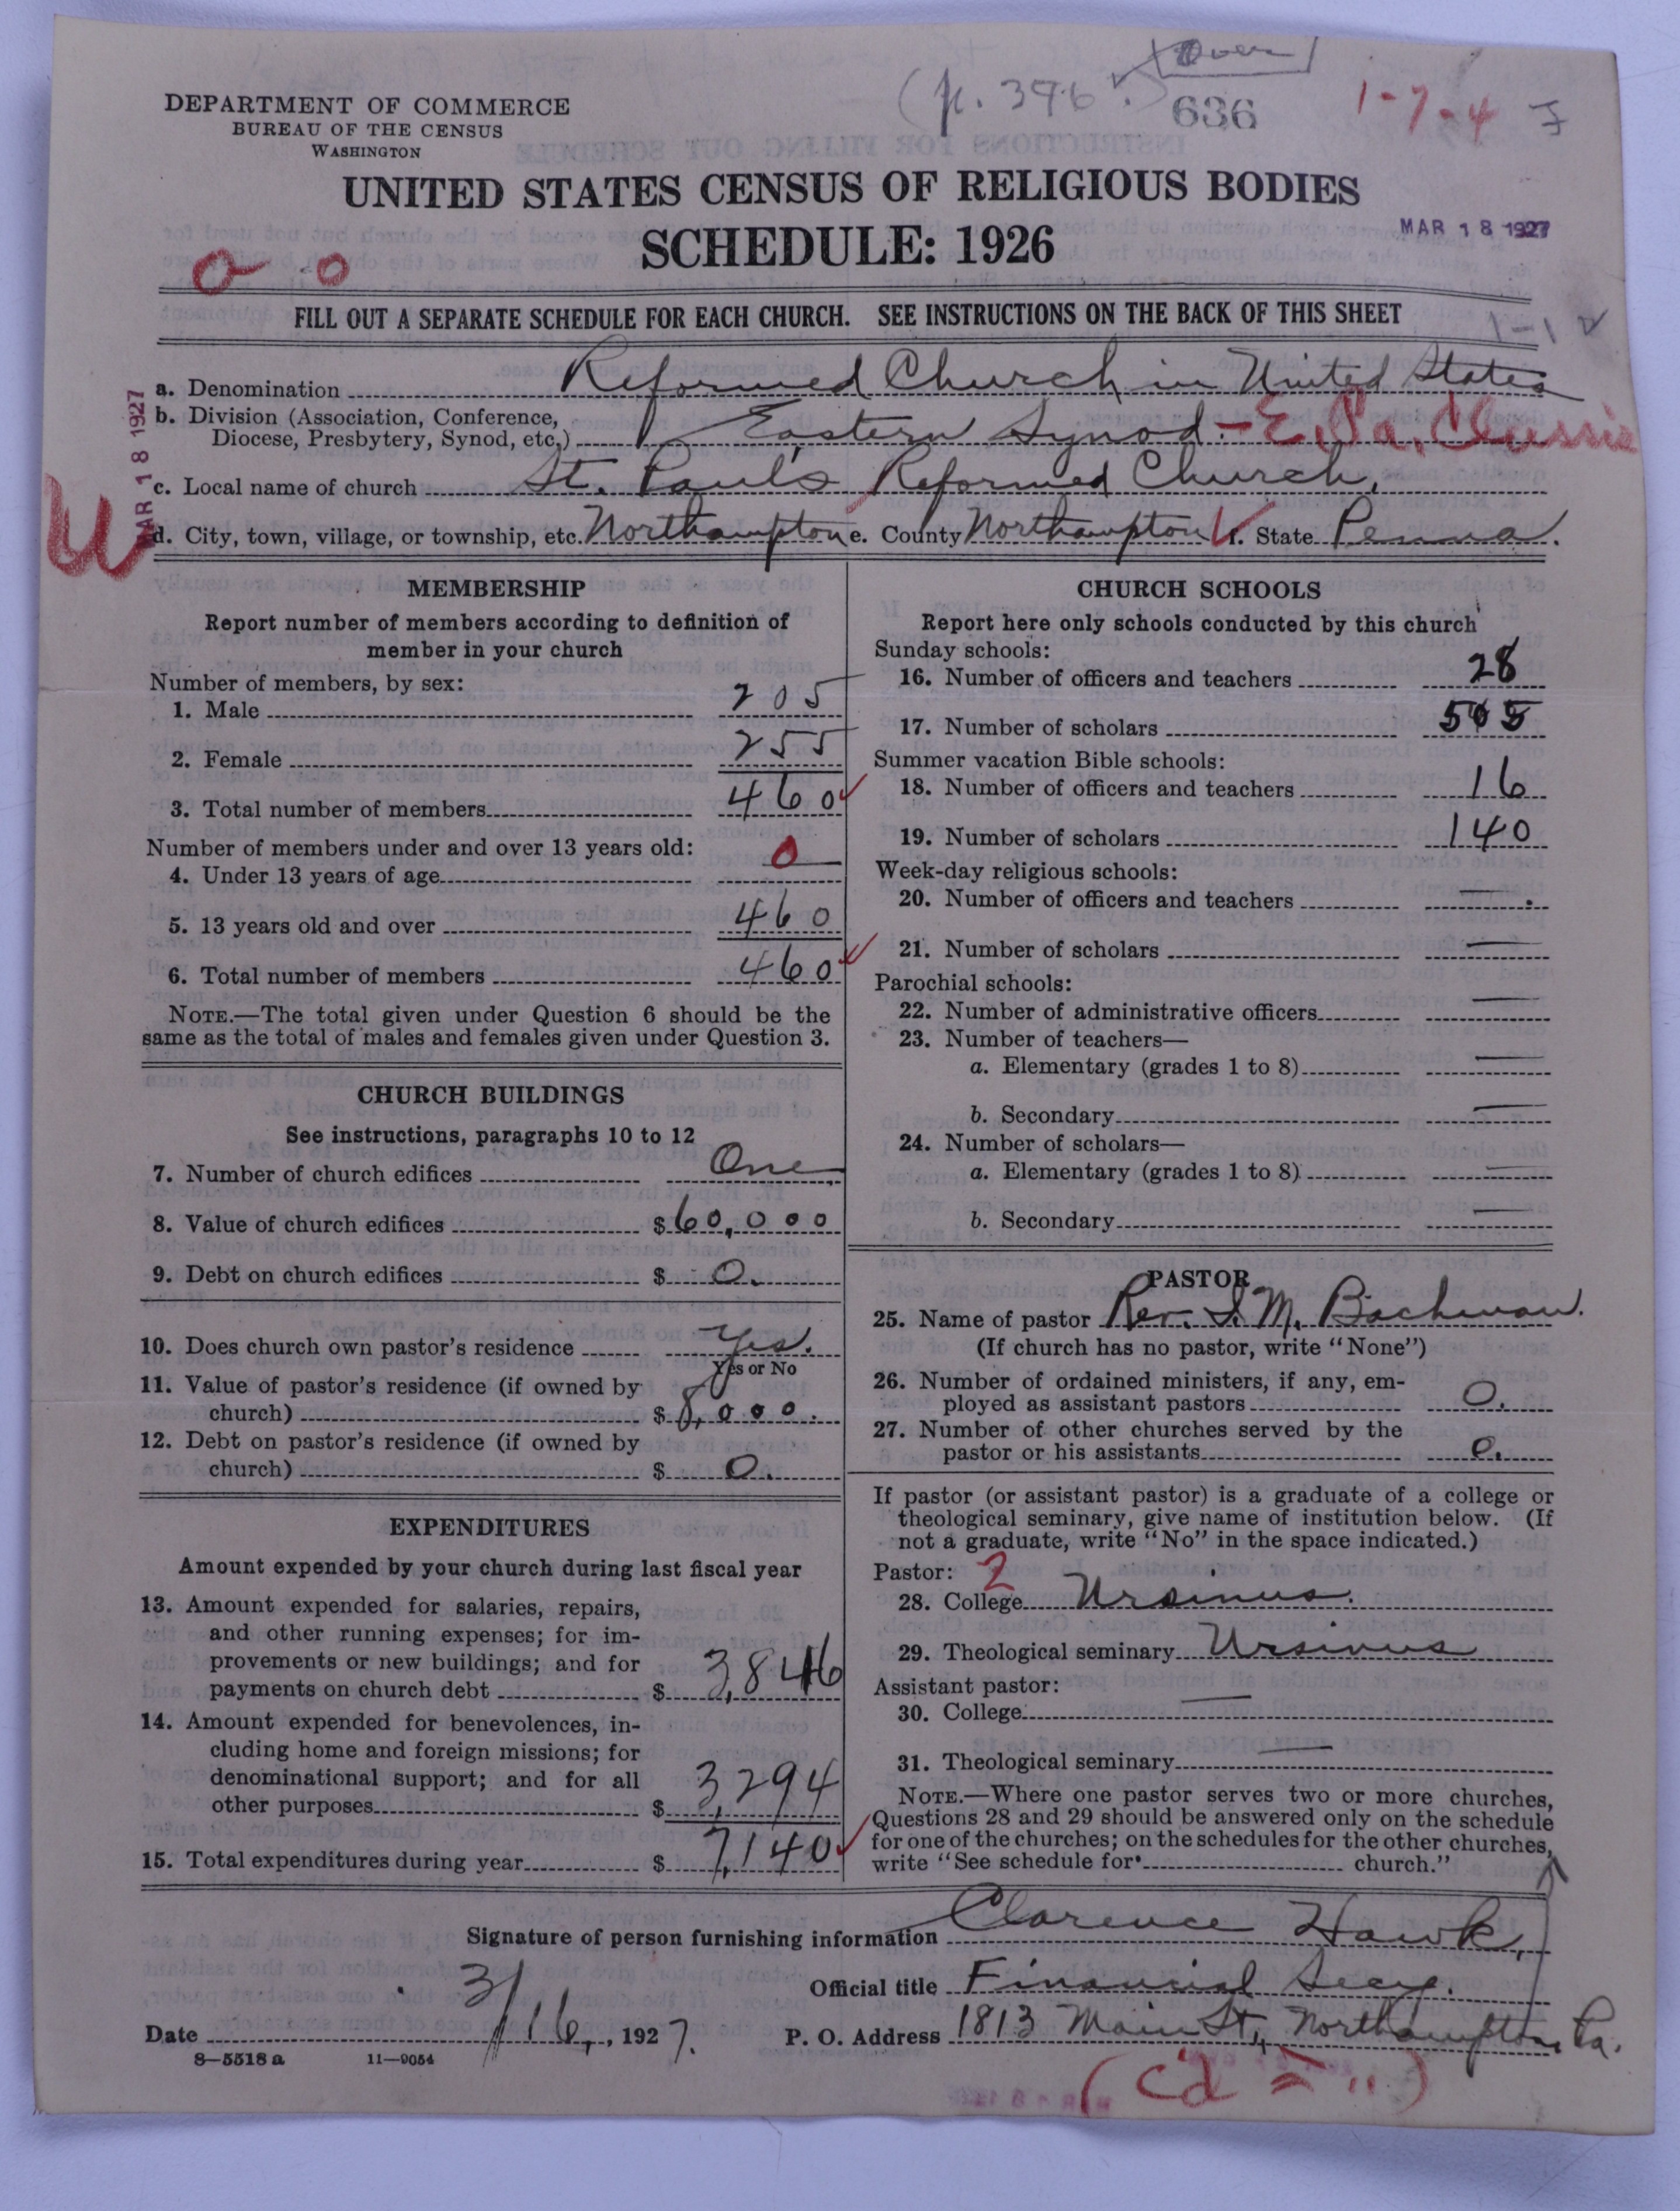 Over
(p. 396.) 636 1-7-4
DEPARTMENT OF COMMERCE
BUREAU OF THE CENSUS
WASHINGTON
UNITED STATES CENSUS OF RELIGIOUS BODIES
SCHEDULE: 1926
MAR 18 1927
O O
FILL OUT A SEPARATE SCHEDULE FOR EACH CHURCH. SEE INSTRUCTIONS ON THE BACK OF THIS SHEET
1-1
MAR 18 1927
a. Denomination Reformed Church in United States
b. Division (Association, Conference,
Diocese, Presbytery, Synod, etc.) Eastern Synod. - E. Pa. Classis
c. Local name of church St. Paul's Reformed Church.
d. City, town, village, or township, etc. Northampton e. County Northampton f. State Penna.
MEMBERSHIP
Report number of members according to definition of
member in your church
Number of members, by sex:
1. Male 205
2. Female 255
3. Total number of members 460
Number of members under and over 13 years old:
4. Under 13 years of age 0
5. 13 years old and over 460
6. Total number of members 460
NOTE.—The total given under Question 6 should be the
same as the total of males and females given under Question 3.
CHURCH BUILDINGS
See instructions, paragraphs 10 to 12
7. Number of church edifices One
8. Value of church edifices $ 60,000
9. Debt on church edifices $ 0.
10. Does church own pastor's residence Yes.
Yes or No
11. Value of pastor's residence (if owned by
church) $ 8,000.
12. Debt on pastor's residence (if owned by
church) $ 0.
EXPENDITURES
Amount expended by your church during last fiscal year
13. Amount expended for salaries, repairs,
and other running expenses; for im-
provements or new buildings; and for
payments on church debt $ 3,846
14. Amount expended for benevolences, in-
cluding home and foreign missions; for
denominational support; and for all
other purposes $ 3,294
15. Total expenditures during year $ 7,140
CHURCH SCHOOLS
Report here only schools conducted by this church
Sunday schools:
16. Number of officers and teachers 28
17. Number of scholars 505
Summer vacation Bible schools:
18. Number of officers and teachers 16
19. Number of scholars 140
Week-day religious schools:
20. Number of officers and teachers —
21. Number of scholars —
Parochial schools:
22. Number of administrative officers —
23. Number of teachers—
a. Elementary (grades 1 to 8) —
b. Secondary —
24. Number of scholars—
a. Elementary (grades 1 to 8) —
b. Secondary —
PASTOR
25. Name of pastor Rev. I. M. Bachman.
(If church has no pastor, write "None")
26. Number of ordained ministers, if any, em-
ployed as assistant pastors 0.
27. Number of other churches served by the
pastor or his assistants 0.
If pastor (or assistant pastor) is a graduate of a college or
theological seminary, give name of institution below. (If
not a graduate, write "No" in the space indicated.)
Pastor: 2
28. College Ursinus.
29. Theological seminary Ursinus
Assistant pastor:
30. College —
31. Theological seminary —
NOTE.—Where one pastor serves two or more churches,
Questions 28 and 29 should be answered only on the schedule
for one of the churches; on the schedules for the other churches,
write "See schedule for church."
Signature of person furnishing information Clarence Hawk,
Official title Financial Secy.
Date 3/16, 1927. P. O. Address 1813 Main St., Northampton, Pa.
8—5518 a 11—9054